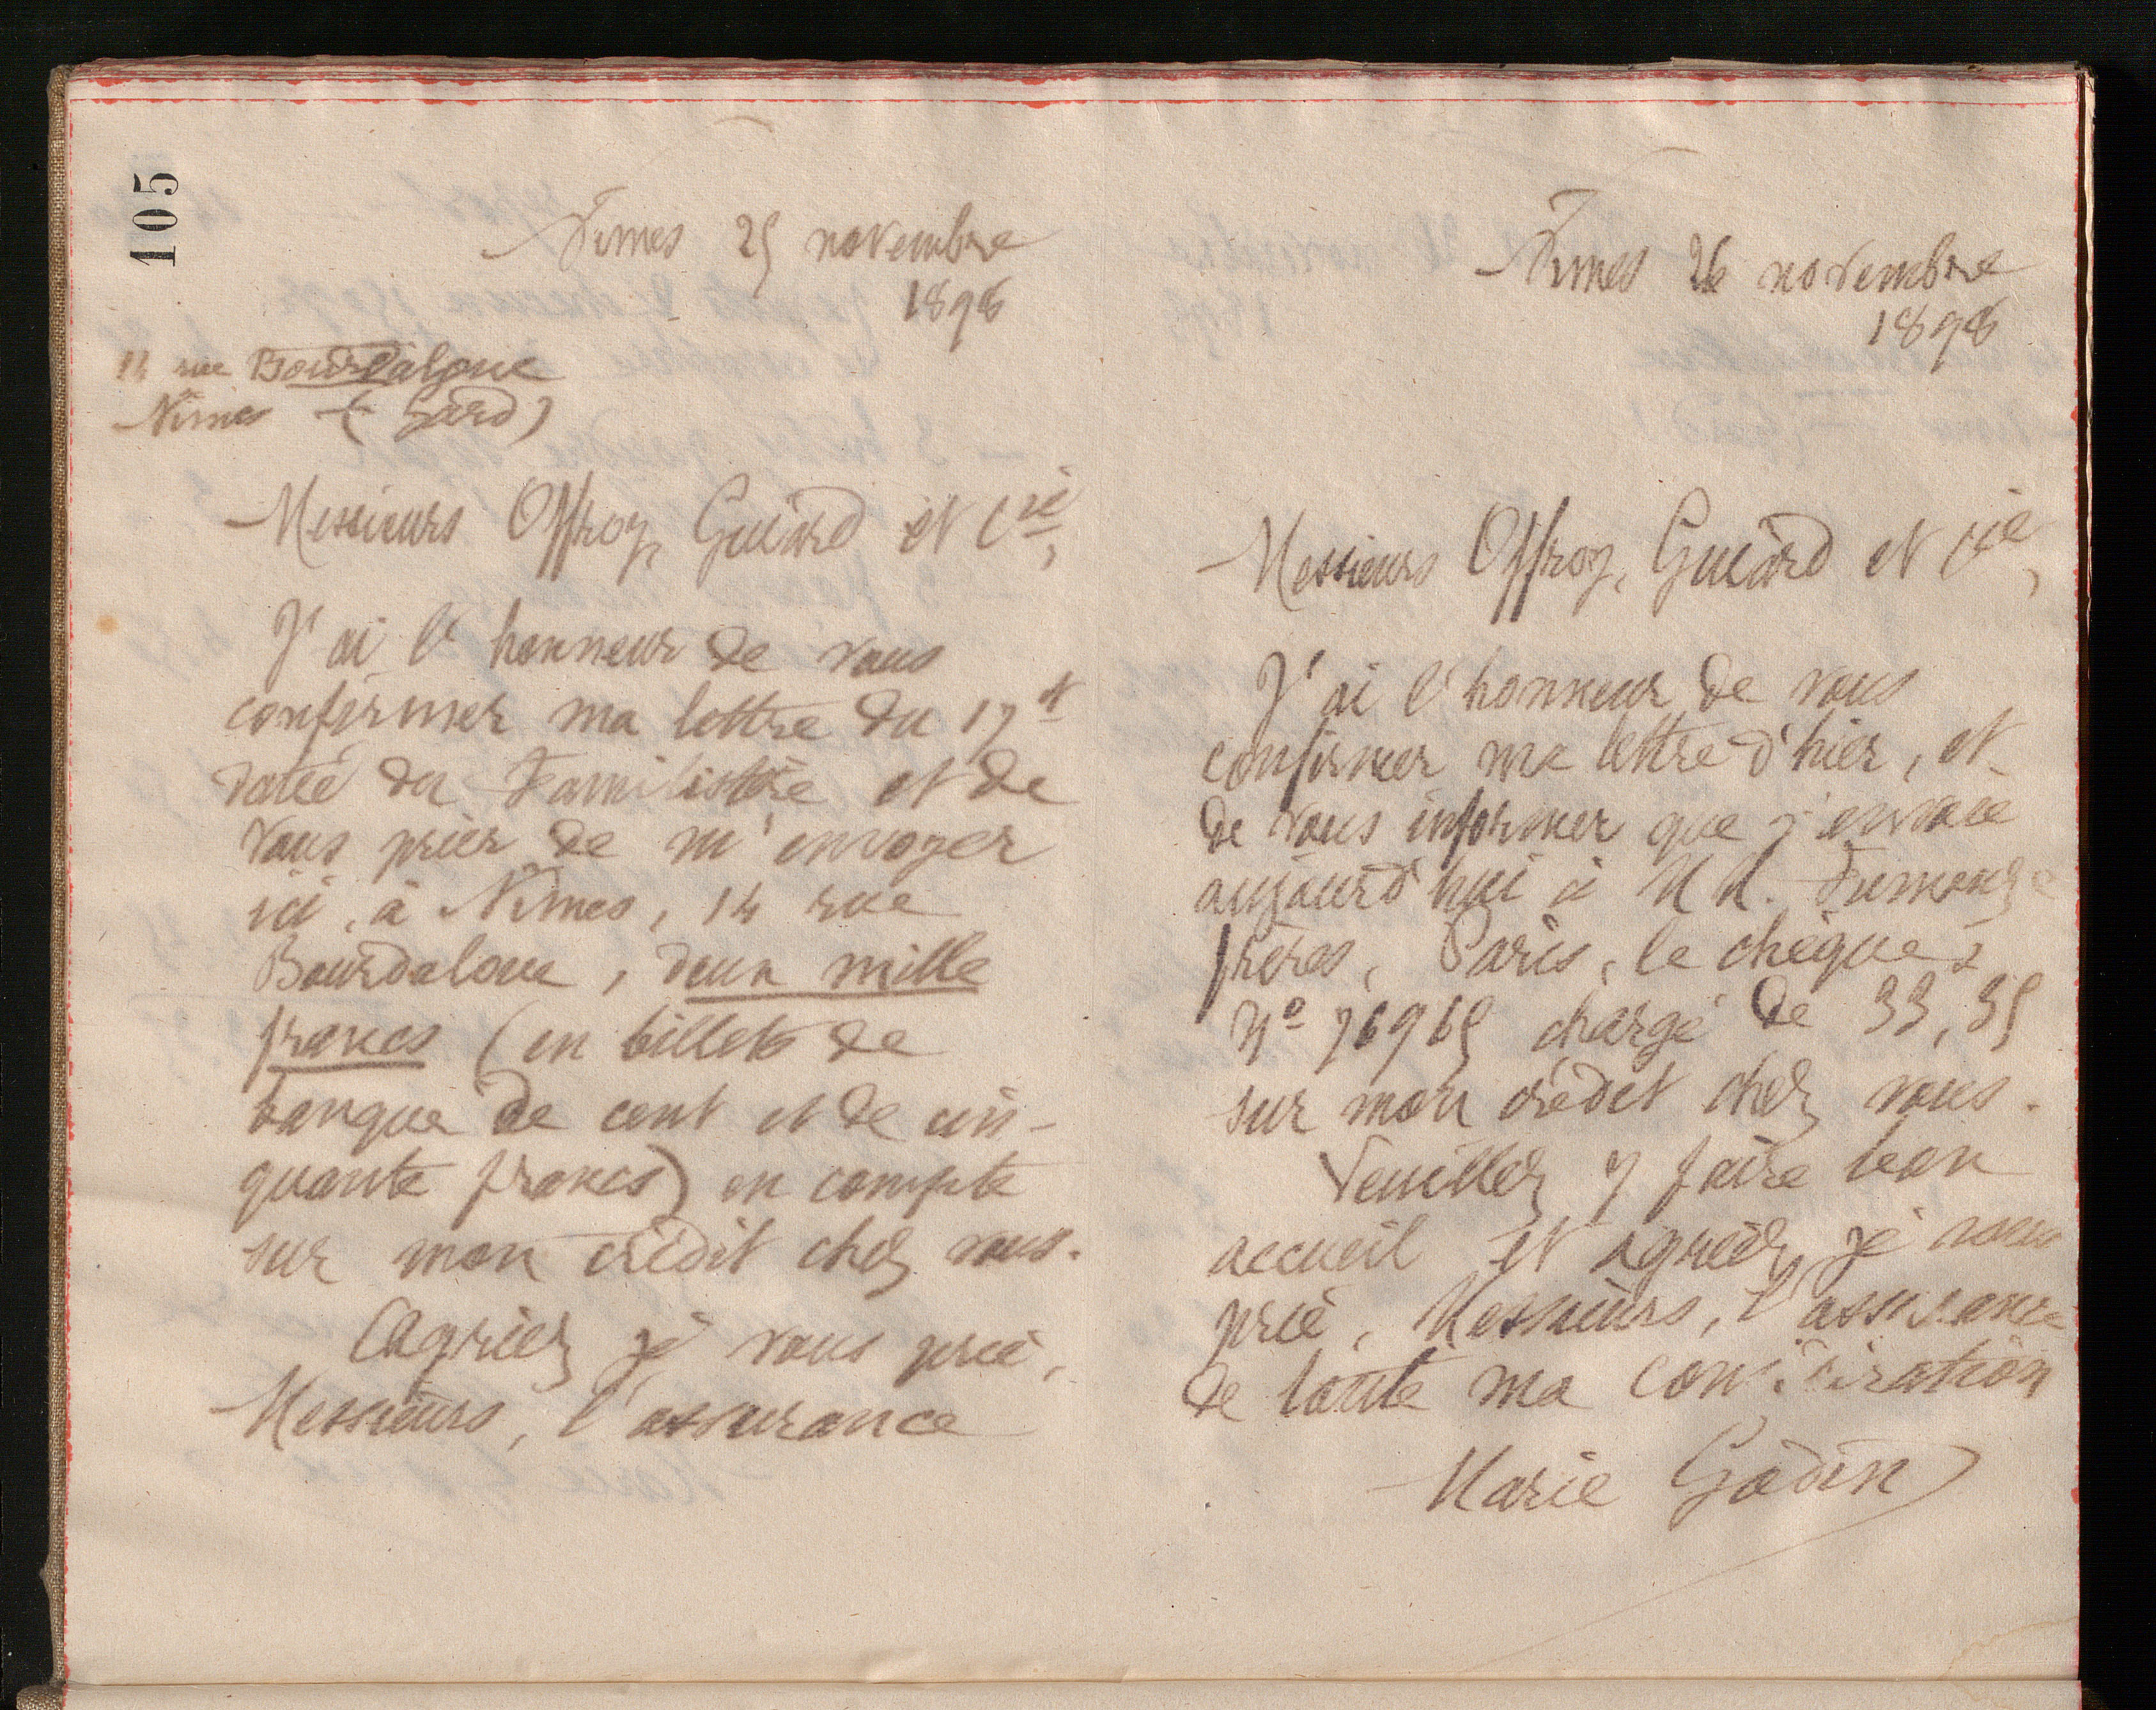 105
Nîmes 25 novembre
1898
14 rue Bourdaloue
Nîmes (Gard)
Messieurs Offroy, Guiard et Cie,
J'ai l'honneur de vous
confirmer ma lettre du 17 ct
datée du Familistère et de
vous prier de m'envoyer
ici, à Nîmes, 14 rue
Bourdaloue, deux mille
francs (en billets de
banque de cent et de cin-
quante francs) en compte
sur mon crédit chez vous.
Agréez je vous prie,
Messieurs, l'assurance
Nîmes 26 novembre
1898
Messieurs Offroy, Guiard et Cie,
J'ai l'honneur de vous
confirmer ma lettre d'hier, et
de vous informer que j'envoie
aujourd'hui à MM. Fumouze
frères, Paris, le chèque
No 76965 chargé de 33,35
sur mon crédit chez vous.
Veuillez y faire bon
accueil et agréez, je vous
prie, Messieurs, l'assurance
de toute ma considération
Marie Godin